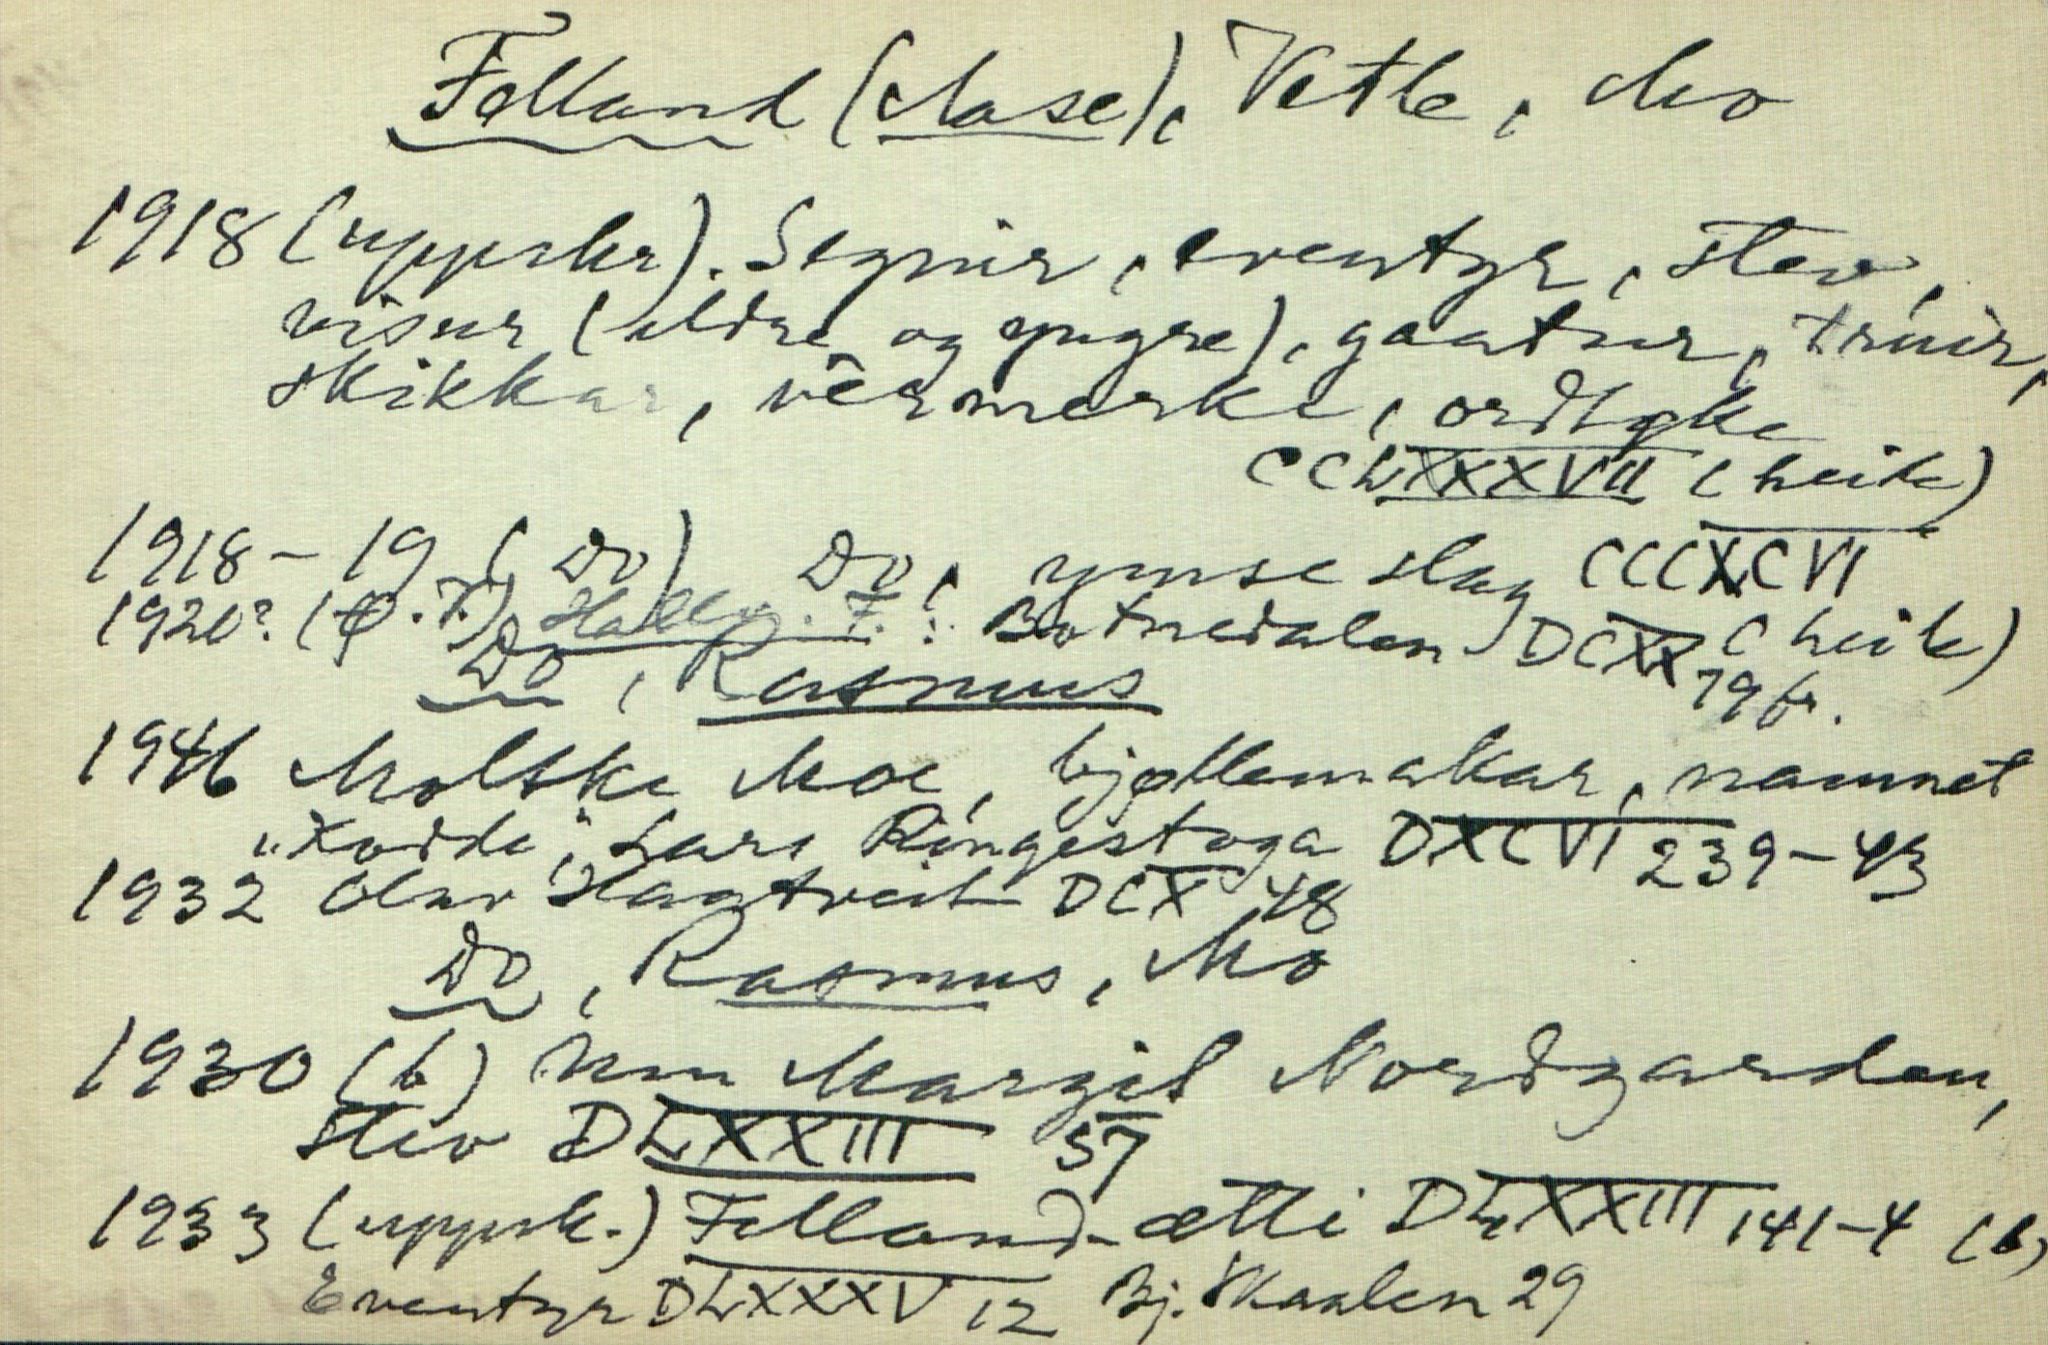 Felland (Aase), Vetle, Mo
1918 (uppskr). Segnir, eventyr, stev,
visur (eldre og yngre), gaatur, truir,
skikkar, vêrmerke, ordtøke
CCLXXXVII (heile)
1918-19 (Do) Do, ymse slag CCCXCVI
1920? (Ø.T.) Hallv. F.: Botnedalen DCXX (heile)
Do, Rasmus 79 fr.
1946 Moltke Moe, bjøllemakar, namnet
"Kodde", Lars Ringestoga DXCVI 239-43
1932 Olav Hagtveit DCX 48
Do, Rasmus, Mo
1930 (b) Um Margit Nordgarden,
stev DLXXIII 57
1933 (uppsk.) Felland-ætti DLXXIII 141-4 (b)
Eventyr DLXXXV 12 Bj. Skaalen 29